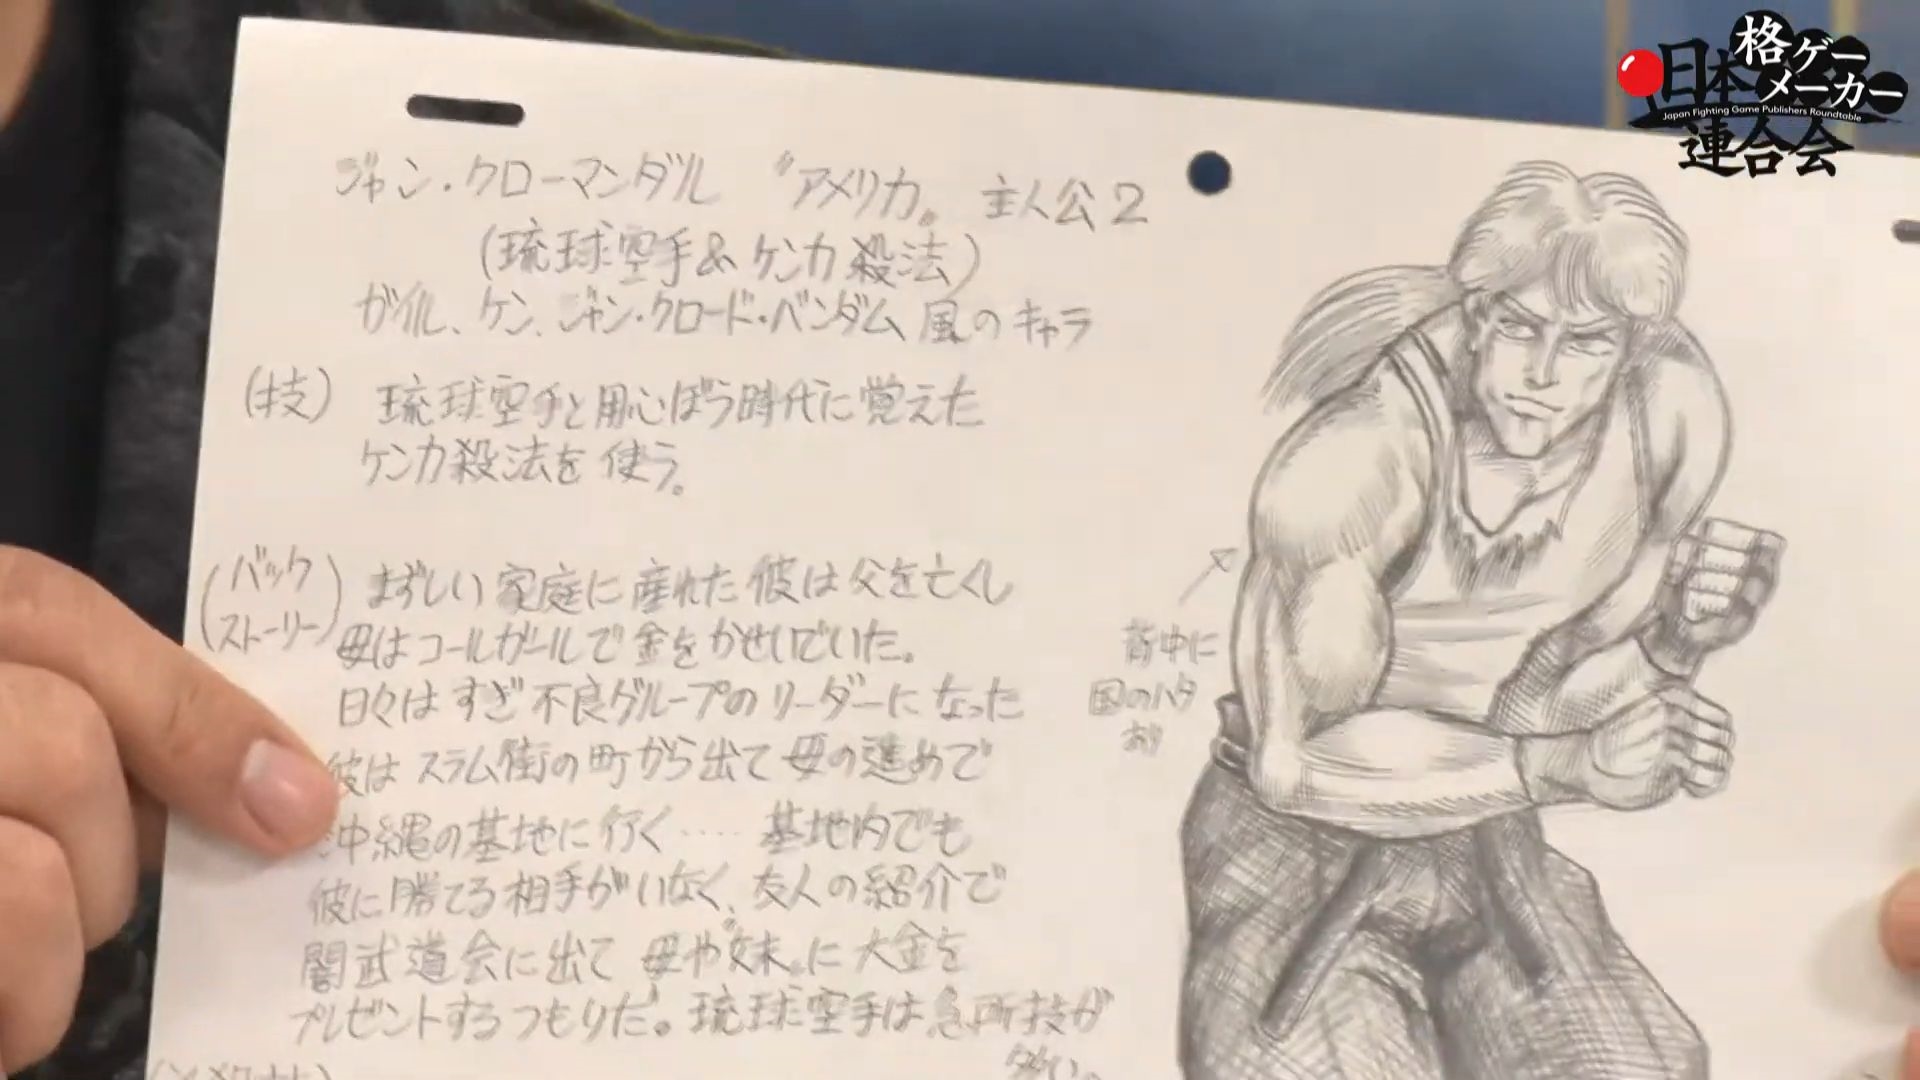 日本格ゲーメーカー連合会
Japan Fighting Game Publishers Roundtable
ジャン・クローマンダル 〝アメリカ〟 主人公2
(琉球空手&ケンカ殺法)
ガイル、ケン、ジャン・クロード・ベンダム風のキャラ
(技) 琉球空手と用心ぼう時代に覚えた
ケンカ殺法を使う。
(バックストーリー) まずしい家庭に産れた彼は父を亡くし
母はコールガールで金をかせいでいた。
日々はすぎ不良グループのリーダーになった
彼はスラム街の町から出て母の進めで
沖縄の基地に行く…… 基地内でも
彼に勝てる相手がいなく、友人の紹介で
闇武道会に出て母や〝妹〟に大金を
プレゼントするつもりだ。琉球空手は急所技が
多い。
背中に
国のハタ
あり